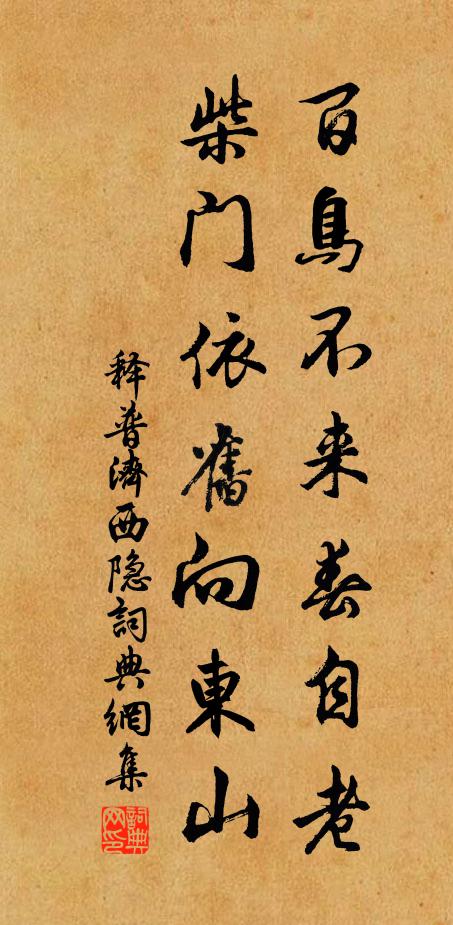 百鳥不来春自老
柴門依舊向東山
释普濟西隐詞典網集
詞典网印